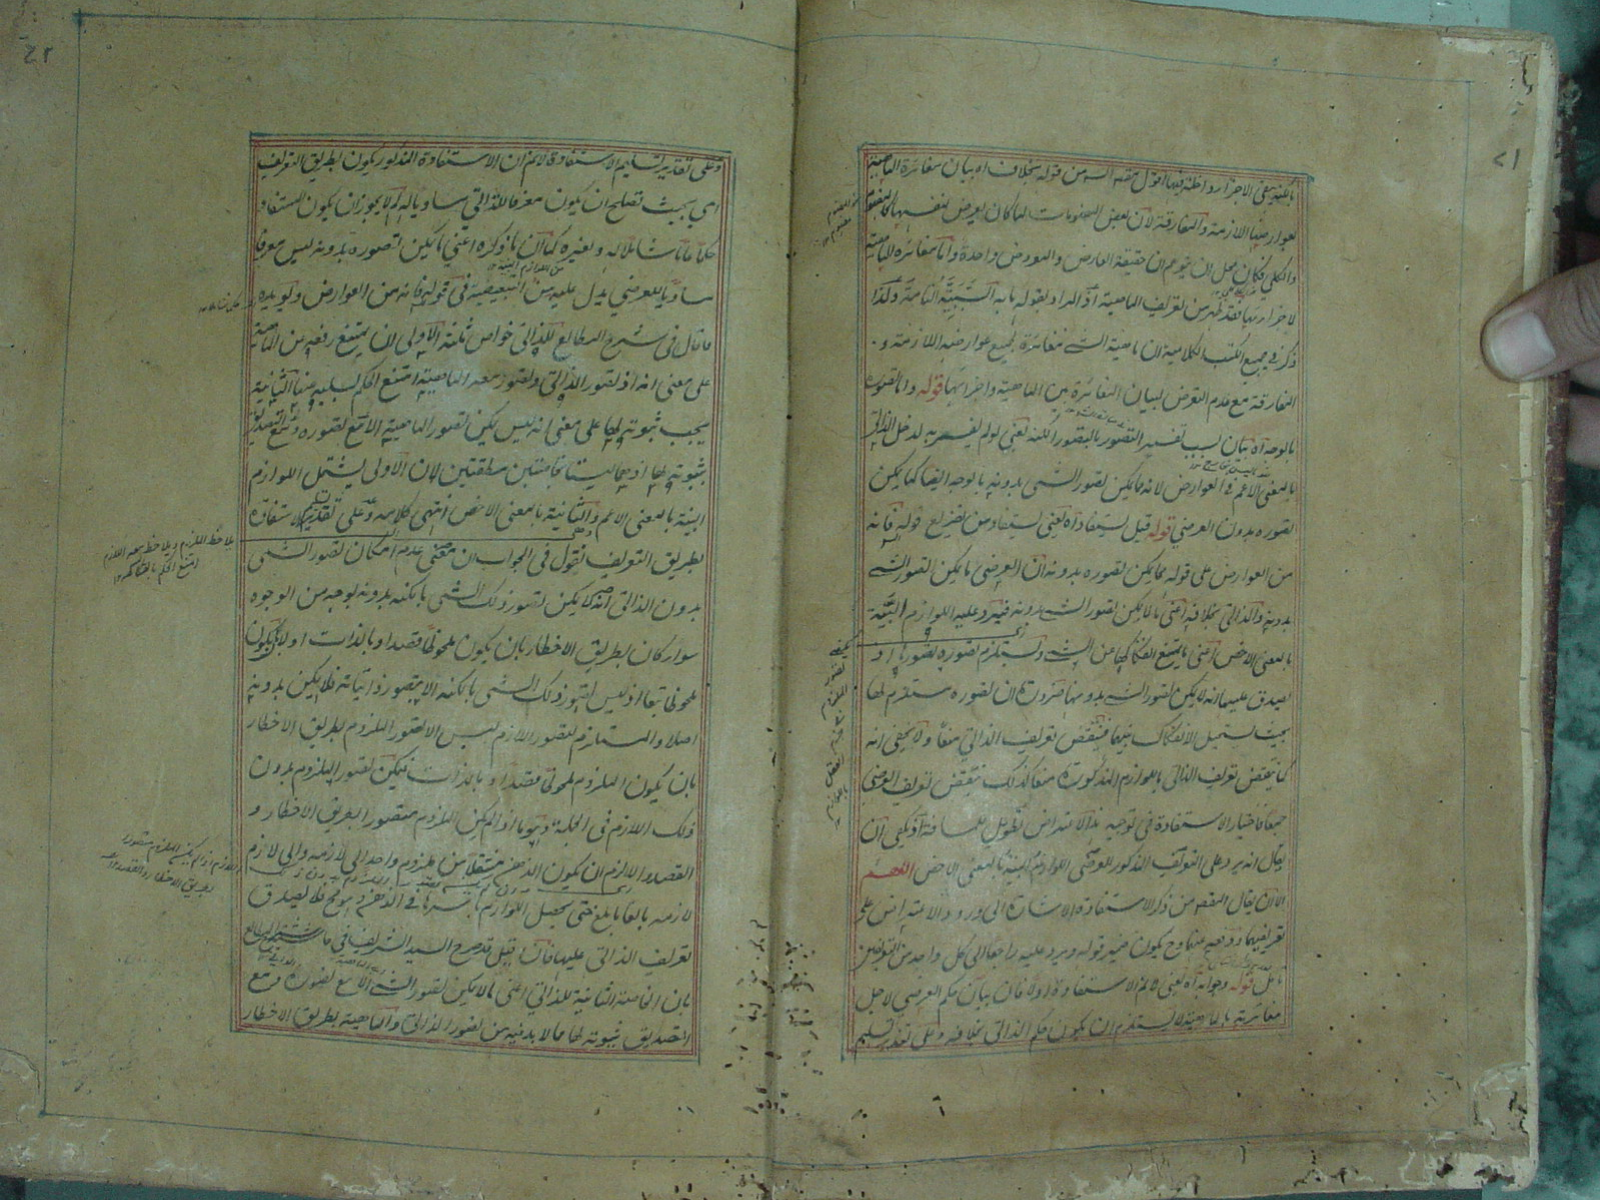 ٢١
بالكلية على الاجزاء واطلاقها اقول مقصود السيد من قوله بخلاف اه بيان مغائرة الماهية
لعوارضها اللازمة والمفارقة لان بعض المفهومات لما كان يعرض لنفسها كالمفهوم
والكلي فكان محل ان يتوهم ان حقيقة العارض والمعروض واحدة واما مغائرة الماهية
لاجزائها فقد ظهر من تعريف الماهية اذ المراد بقوله ما به السببية التامة وكذا
ذكر في جميع الكتب الكلامية ان ماهية الشئ مغائرة لجميع عوارضه اللازمة و
المفارقة مع عدم التعرض لبيان المغائرة بين الماهية واجزائها قوله واما تصوره
بالوجه اه بيان لسبب تفسير التصور بالتصور بالكنه يعني لو لم يفسر به لدخل الذاتي
بالمعنى الاعم في العوارض لانه كما يمكن تصور الشئ بدونه بالوجه ايضا كما يمكن
تصوره بدون العرضي قوله قيل يستفاد اه يعني يستفاد من تفريع قوله فانه
من العوارض على قوله مما يمكن تصوره بدونه ان العرضي ما يمكن تصور الشئ
بدونه والذاتي بخلافه اعني ما لا يمكن تصور الشئ بدونه فيرد عليه اللوازم البينة
بالمعنى الاخص اعني ما يمتنع انفكاكها عن الشئ ويستلزم تصوره تصورها اذ
يصدق عليها انه لا يمكن تصور الشئ بدونها ضرورة ان تصوره مستلزم لها
بحيث يستحيل الانفكاك بينهما فينتقض تعريف الذاتي منعا ولا يخفى انه
كما ينتقض تعريف الذاتي باللوازم المذكورة منعا كذلك ينتقض تعريف العرضي
جمعا فاختيار الاستفادة في توجيه هذا الاعتراض تطويل للمسافة اذ يكفي ان
يقال انه يرد على التعريف المذكور للعرضي اللوازم البينة بالمعنى الاخص اللهم
الا ان يقال المقصود من ذكر الاستفادة الاشارة الى ورود الاعتراض على
تعريفيهما وح يكون ضمير قوله ويرد عليه راجعا الى كل واحد من التعريفين
تأمل قوله وجوابه اه يعني لا نم الاستفادة اولا فان بيان حكم العرضي لاجل
مغائرته بالماهية لا يستلزم ان يكون حكم الذاتي بخلافه وعلى تقدير تسليم
٢٢
وعلى تقدير تسليم الاستفادة لا نم ان الاستفادة المذكور يكون بطريق التعريف
اي بحيث تصلح ان يكون معرفا للذاتي مساويا له لم لا يجوز ان يكون المستفاد
حكما عاما شاملا له ولغيره كما ان ما ذكره اعني ما يمكن تصوره بدونه ليس معرفا
مساويا للعرضي يدل عليه من التبعيضية في قوله فانه من العوارض ويؤيده
ما قال في شرح المطالع للذاتي خواص ثلثة الاولى ان يمتنع رفعه عن الماهية
على معنى انه اذ تصور الذاتي وتصور معه الماهية امتنع الحكم بسلبه عنها الثانية
يجب ثبوته لها على معنى انه ليس يمكن تصور الماهية الا مع تصوره ومع التصديق
بثبوته لها وهما ليستا خاصتين مطلقتين لان الاولى يشتمل اللوازم
البينة بالمعنى الاعم والثانية بالمعنى الاخص انتهى كلامه وعلى تقدير الاستفادة
بطريق التعريف نقول في الجواب ان معنى عدم امكان تصور الشئ
بدون الذاتي انه لا يمكن تصور ذلك الشئ بالكنه بدونه بوجه من الوجوه
سواء كان بطريق الاخطار بان يكون ملحوظا قصدا وبالذات او لا بان يكون
ملحوظا تبعا اذ ليس تصور ذلك الشئ بالكنه الا تصور ذاتياته فلا يمكن بدونه
اصلا والمستلزم لتصور اللازم ليس الا تصور الملزوم بطريق الاخطار
بان يكون الملزوم ملحوظا قصدا وبالذات فيمكن تصور الملزوم بدون
ذلك اللازم في الجملة وهو ما اذا لم يكن الملزوم متصورا بطريق الاخطار و
القصد والا لزم ان يكون الذهن منتقلا من ملزوم واحد الى لازمه والى لازم
لازمه بالغا ما بلغ حتى تحصل اللوازم باسرها في الذهن وهو مح فلا يصدق
تعريف الذاتي عليها فان قيل قد صرح السيد الشريف في حاشية شرح المطالع
بان الخاصة الثانية للذاتي اعني ما لا يمكن تصور الشئ الا مع تصوره ومع
التصديق بثبوته لها مما لا بد فيه من تصور الذاتي والماهية بطريق الاخطار
بلاحظ الملزوم ويلاحظ معه اللازم
امتنع الحكم بانفكاكه
اللازم اذا لم يكن الملزوم متصورا
بطريق الاخطار والقصد